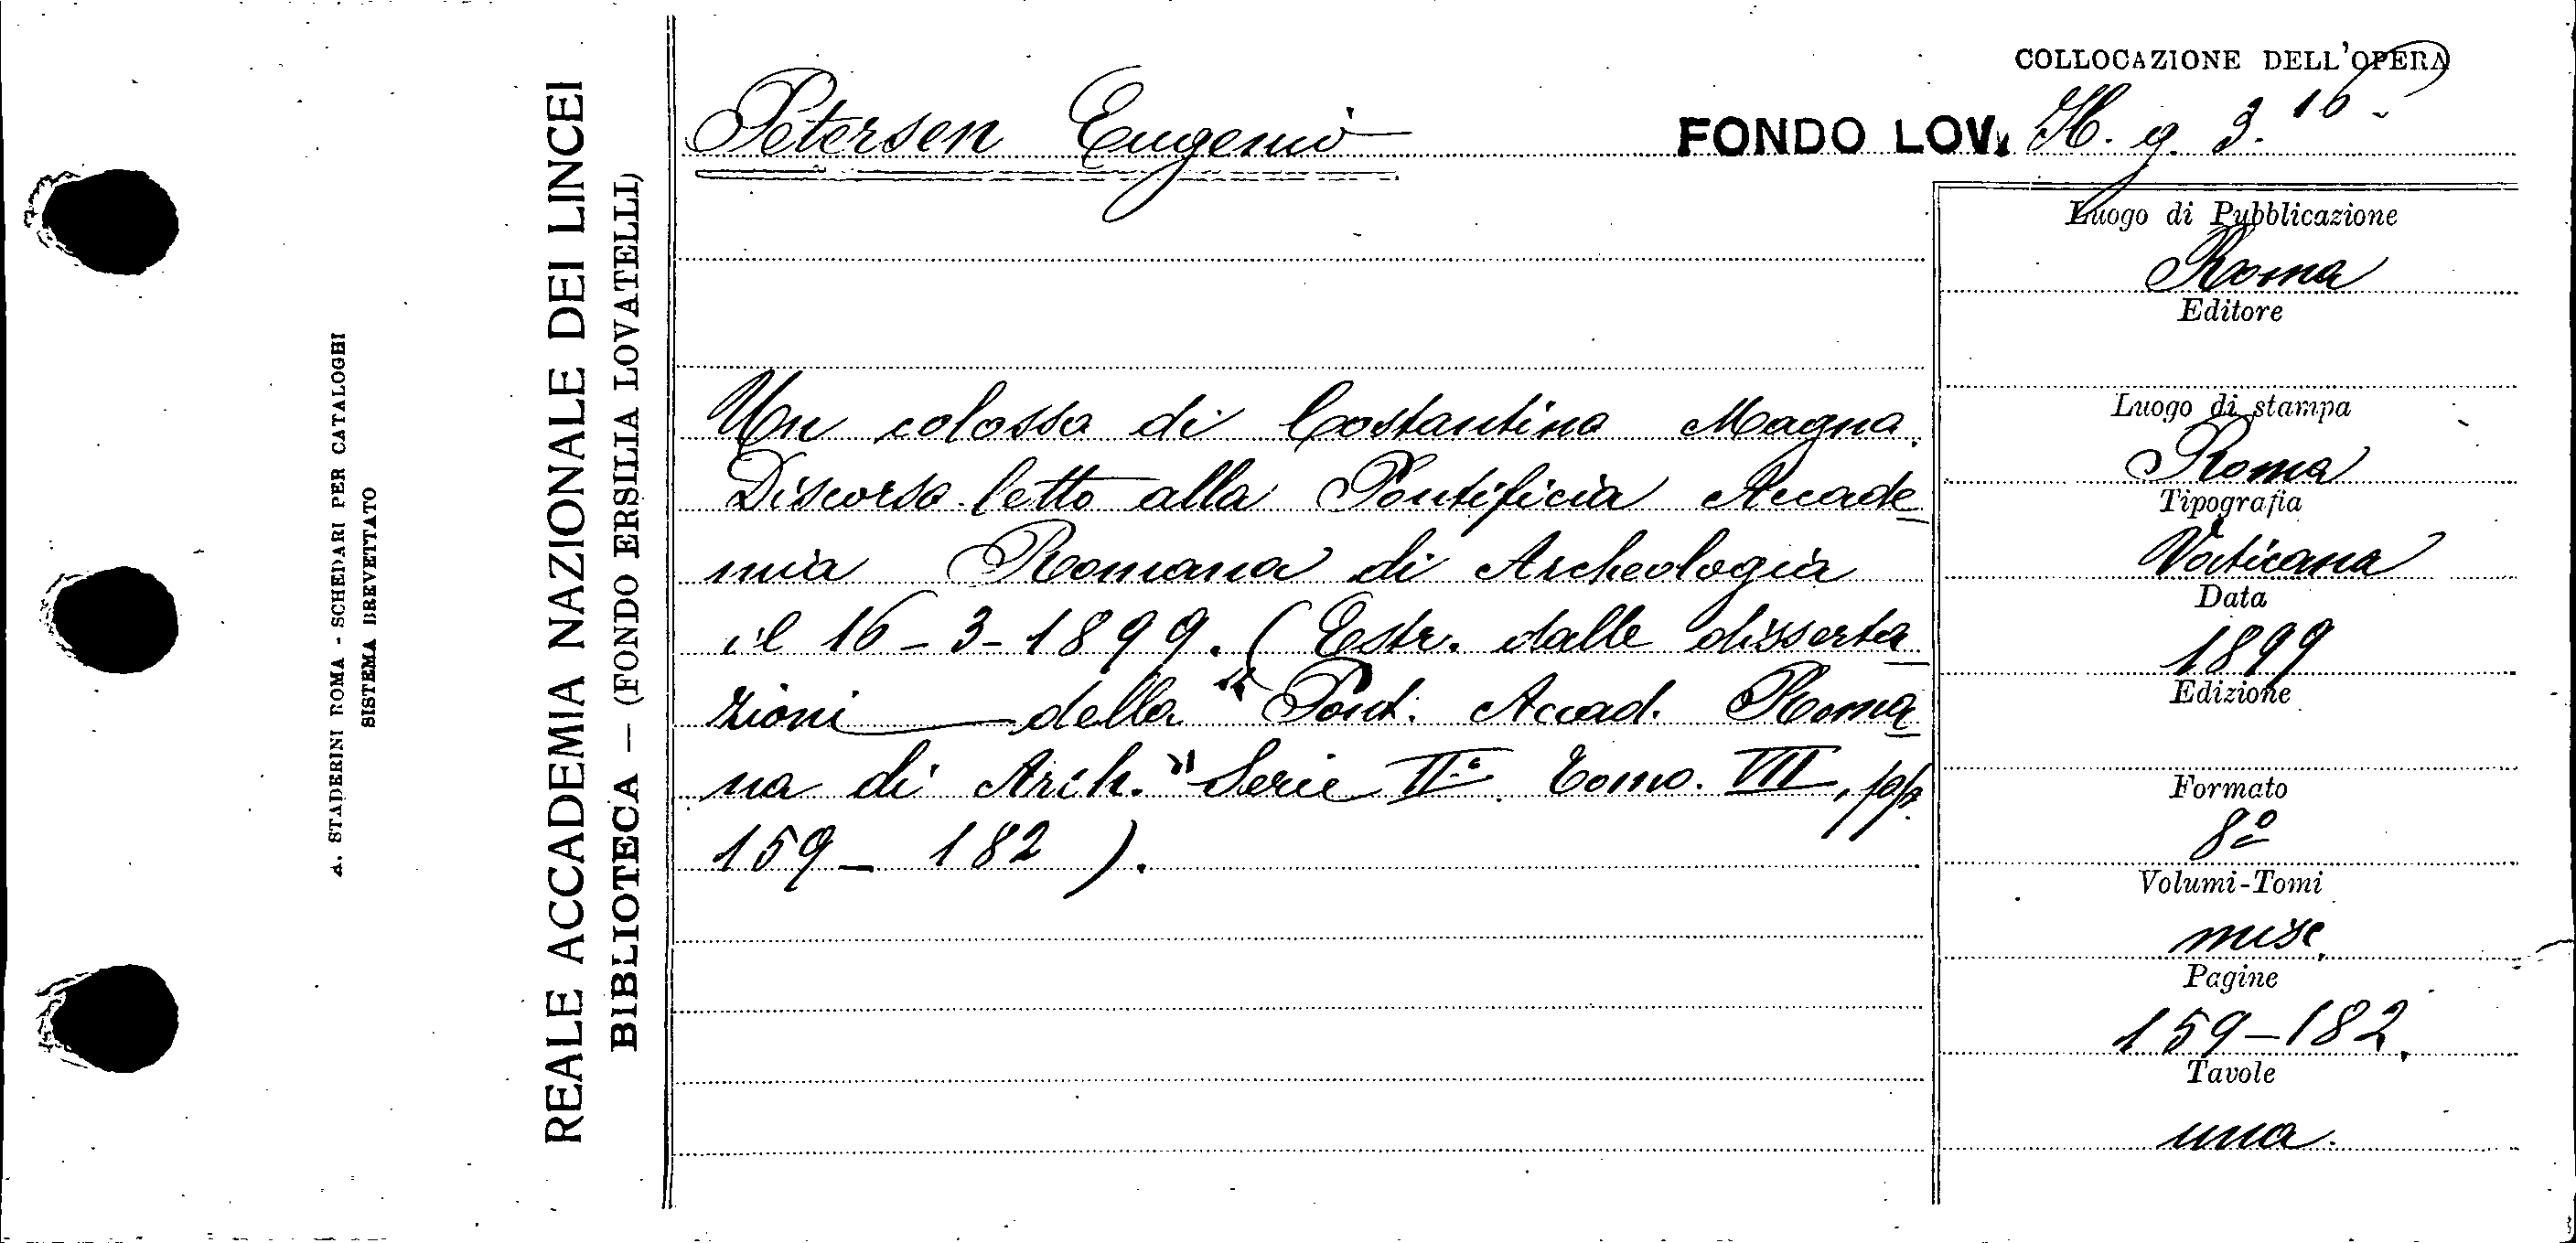 COLLOCAZIONE DELL'OPERA
Petersen Eugenio
FONDO LOV. H. g. 3. 16
Un colosso di Costantino Magno.
Discorso letto alla Pontificia Accade
mia Romana di Archeologia
il 16-3-1899. (Estr. dalle disserta
zioni della "Pont. Accad. Roma
na di Arch." Serie IIª Tomo. VII, pp.
159-182).
Luogo di Pubblicazione
Roma
Editore
Luogo di stampa
Roma
Tipografia
Vaticana
Data
1899
Edizione
Formato
8º
Volumi-Tomi
misc.
Pagine
159-182.
Tavole
una.
REALE ACCADEMIA NAZIONALE DEI LINCEI
BIBLIOTECA — (FONDO ERSILIA LOVATELLI)
A. STADERINI ROMA - SCHEDARI PER CATALOGHI
SISTEMA BREVETTATO